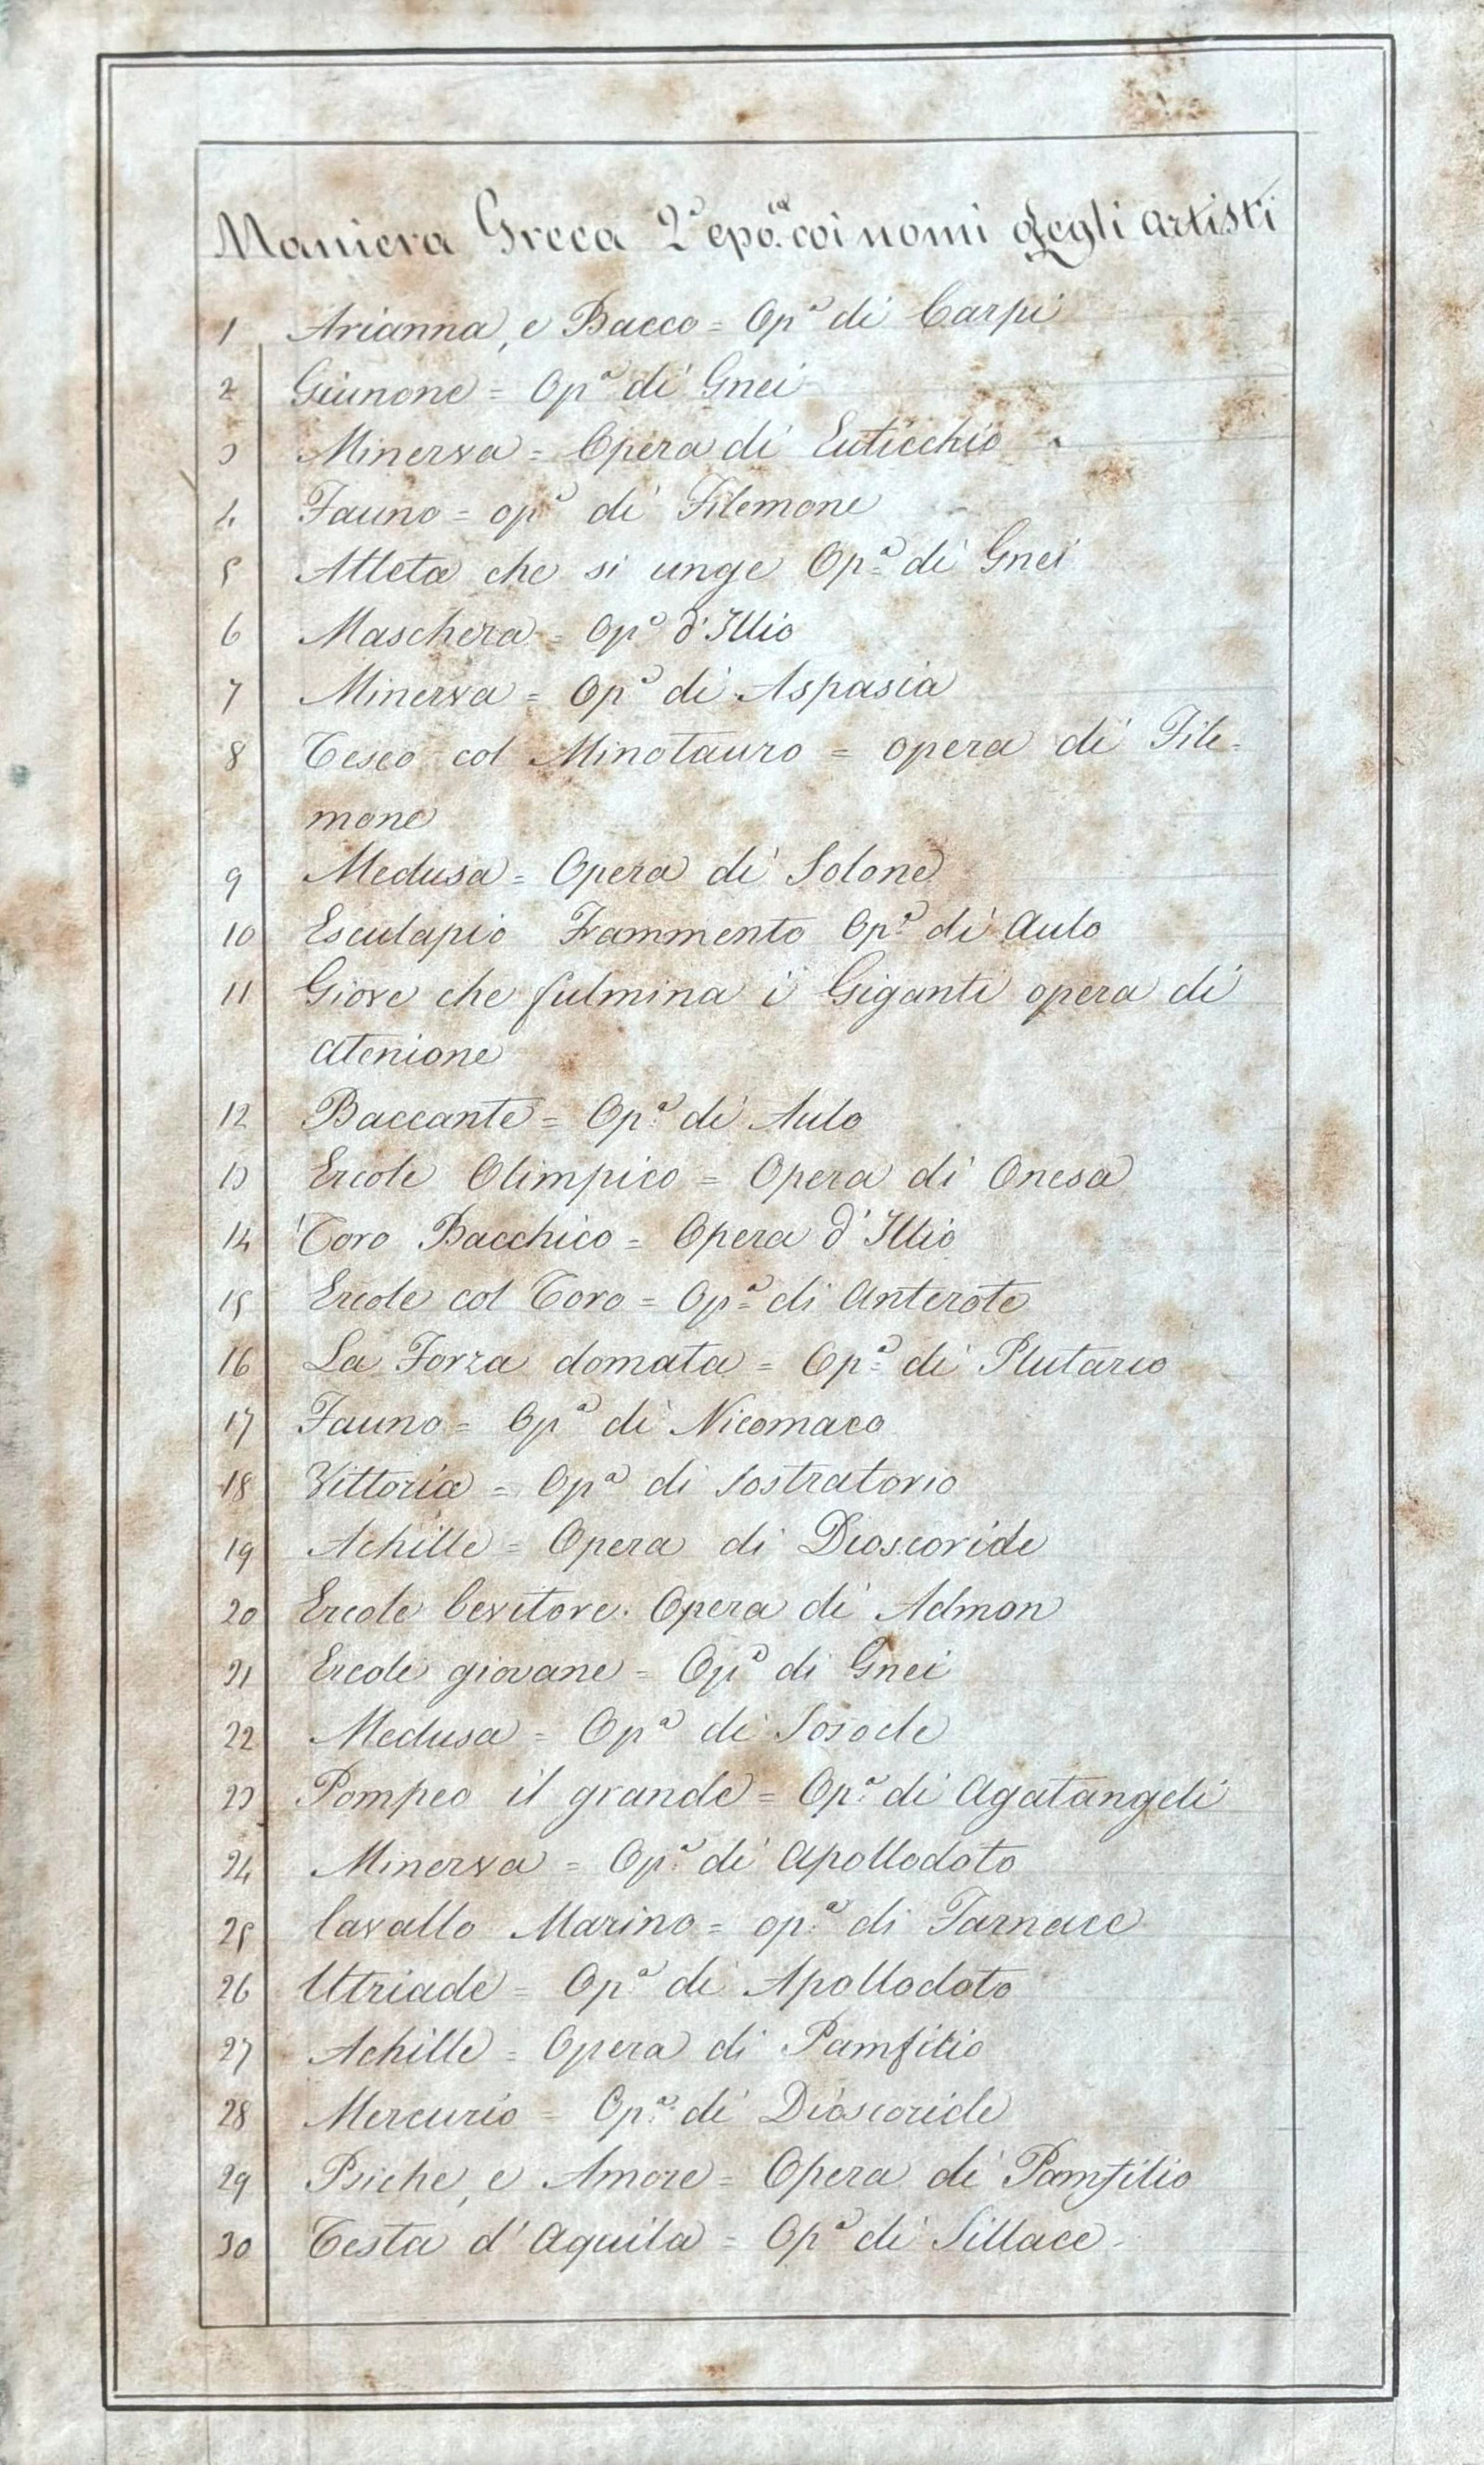 Maniera Greca 2ª epo.ca coi nomi degli artisti
1 Arianna, e Bacco = Opª di Carpi
2 Giunone = Opª di Gnei
3 Minerva = Opera di Euticchio
4 Fauno = opª di Filemone
5 Atleta che si unge Opª di Gnei
6 Maschera = Opª d'Illio
7 Minerva = Opª di Aspasia
8 Teseo col Minotauro = opera di File=
mone
9 Medusa = Opera di Solone
10 Esculapio Frammento Opª di Aulo
11 Giove che fulmina i Giganti opera di
Atenione
12 Baccante = Opª di Aulo
13 Ercole Olimpico = Opera di Onesa
14 Toro Bacchico = Opera d'Illio
15 Ercole col Toro = Opª di Anterote
16 La Forza domata = Opª di Plutarco
17 Fauno = Opª di Nicomaco
18 Vittoria = Opª di Sostratorio
19 Achille = Opera di Dioscoride
20 Ercole bevitore. Opera di Admon
21 Ercole giovane = Opª di Gnei
22 Medusa = Opª di Sosocle
23 Pompeo il grande = Opª di Agatangeli
24 Minerva = Opª di Apollodoto
25 Cavallo Marino = opª di Farnace
26 Utriade = Opª di Apollodoto
27 Achille = Opera di Pamfilio
28 Mercurio = Opª di Dioscoride
29 Psiche, e Amore = Opera di Pamfilio
30 Testa d'Aquila = Opª di Sillace